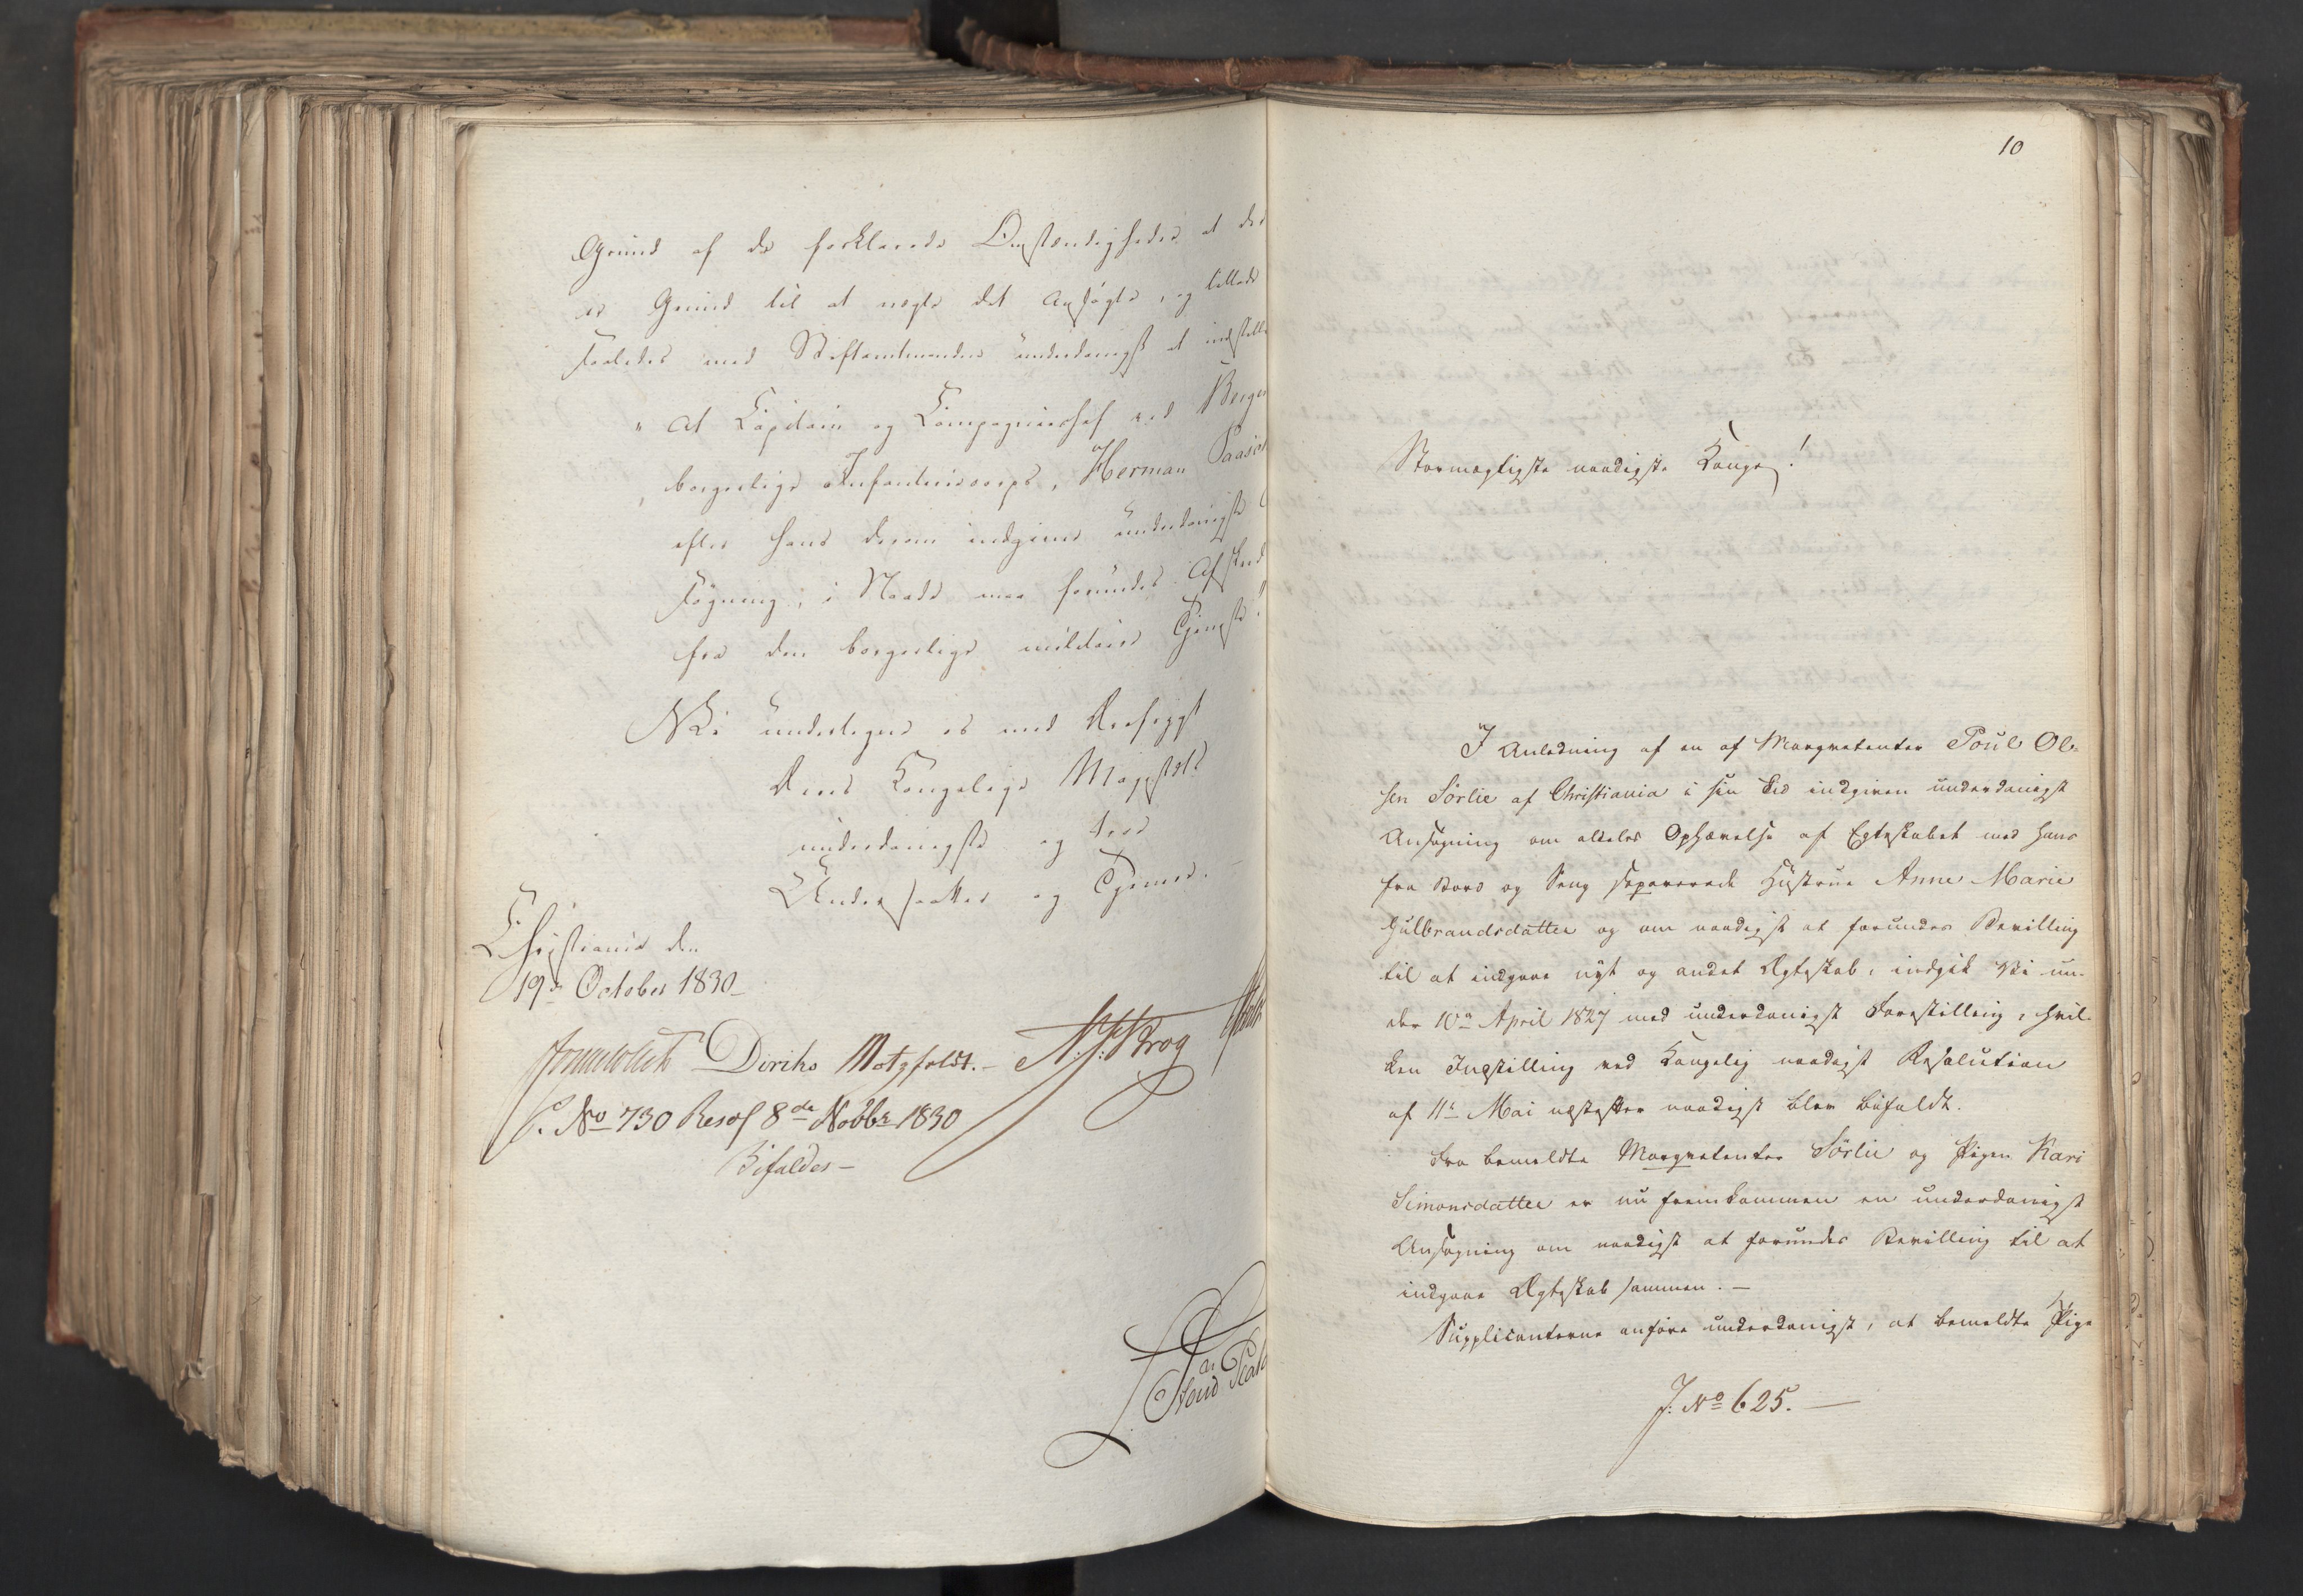 Grund af de forklarede Omstændigheder at der
er Grund til at negte det Ansøgte, og tillade
saaledes med Stiftamtmanden underdanigst at indstille
" At Capitain og Compagniechef ved Bergens
borgerlige Infanteriecorps, Herman Paasche
efter hans derom indgivne underdanigste
søgning, i Naade maa forundes Afsked
fra den borgerlige militaire Tjeneste."
Vi undertegne os med Dybeste
Deres Kongelige Majestæts
underdanigste og troe
Undersaatter og Tjenere.
Christiania den
19de October 1830
Diriks Motzfeldt. N. J. Krog
C. No 730 Resol 8de Novbr 1830
Bifaldes
10
Stormægtigste naadigste Konge!
I Anledning af en af Marqvetenter Poul Ol-
sen Sørlie af Christiania i sin Tid indgiven underdanigst
Ansøgning om aldeles Ophævelse af Egteskabet med hans
fra Bord og Seng separerede Hustrue Anne Marie
Gulbrandsdatter og om naadigst at forundes Bevilling
til at indgaae nyt og andet Ægteskab, indgik Vi un-
der 10de April 1827 med underdanigst Forestilling, hvil-
ken Indstilling ved Kongelig naadigst Resolution
af 11te Mai næstefter naadigst blev bifaldt.
Fra bemeldte Marqvetenter Sørlie og Pigen Kari
Simonsdatter er nu fremkommen en underdanigst
Ansøgning om naadigst at forundes Bevilling til at
indgaae Ægteskab sammen. —
Supplicanterne anføre underdanigst, at bemeldte Pige
J: No 625. —